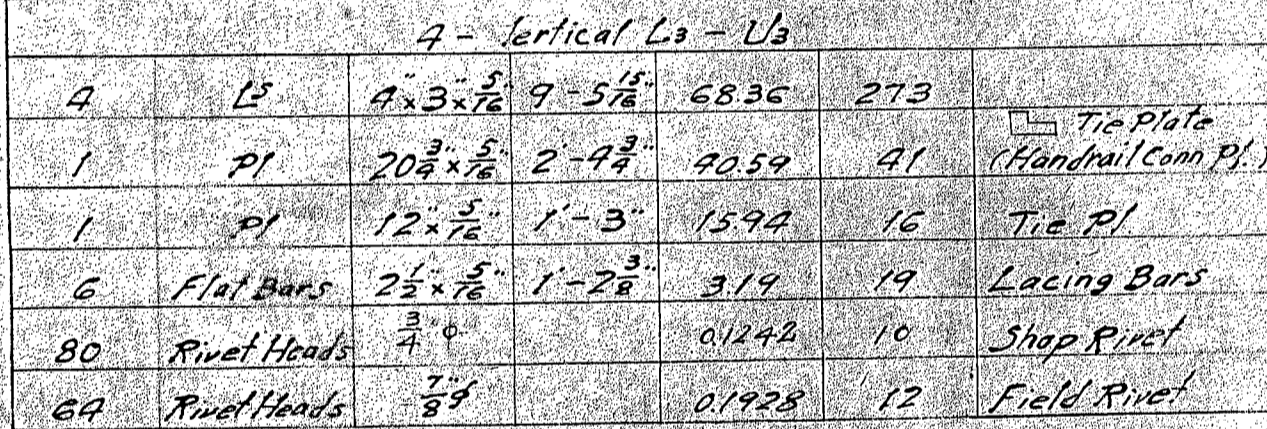 4 - Vertical L3 - U3
4 Ls 4" x 3" x 5/16" 9'-5 15/16" 68.36 273
Tie Plate
1 Pl 20 3/4" x 5/16" 2'-4 3/4" 40.59 41 (Handrail Conn Pl.)
1 Pl 12" x 5/16" 1'-3" 15.94 16 Tie Pl
6 Flat Bars 2 1/2" x 5/16" 1'-2 3/8" 3.19 19 Lacing Bars
80 Rivet Heads 3/4" φ 0.1242 10 Shop Rivet
64 Rivet Heads 7/8" φ 0.1928 12 Field Rivet